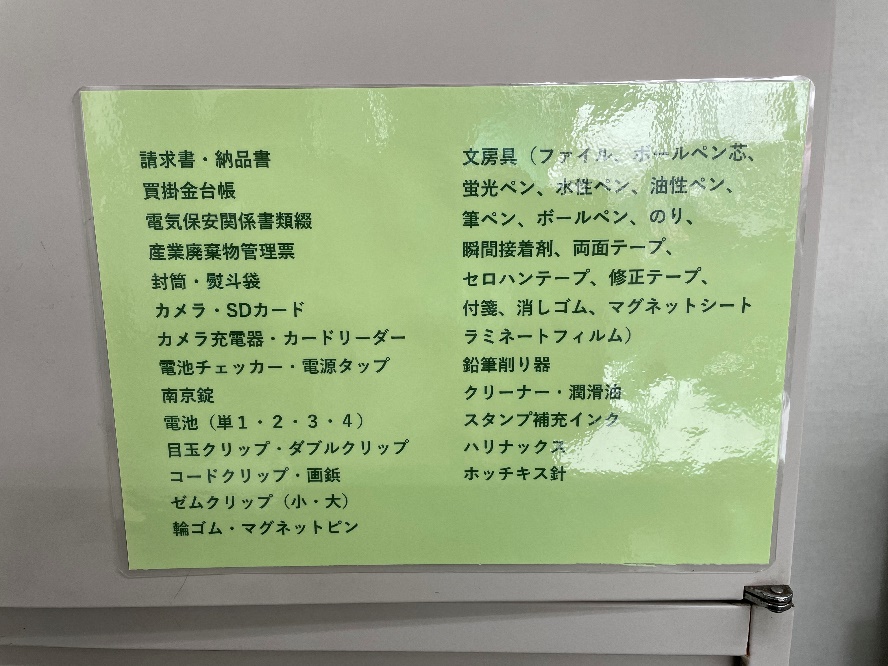 請求書・納品書
買掛金台帳
電気保安関係書類綴
産業廃棄物管理票
封筒・熨斗袋
カメラ・SDカード
カメラ充電器・カードリーダー
電池チェッカー・電源タップ
南京錠
電池（単１・２・３・４）
目玉クリップ・ダブルクリップ
コードクリップ・画鋲
ゼムクリップ（小・大）
輪ゴム・マグネットピン
文房具（ファイル、ボールペン芯、
蛍光ペン、水性ペン、油性ペン、
筆ペン、ボールペン、のり、
瞬間接着剤、両面テープ、
セロハンテープ、修正テープ、
付箋、消しゴム、マグネットシート
ラミネートフィルム）
鉛筆削り器
クリーナー・潤滑油
スタンプ補充インク
ハリナックス
ホッチキス針